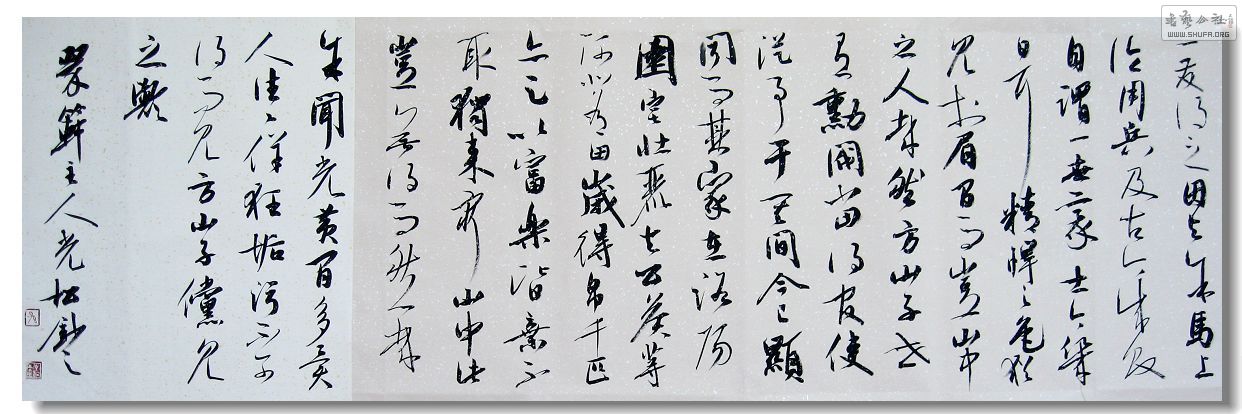 一發得之因與余馬上
論用兵及古今成敗
自謂一世豪士今幾
日耳精悍之色猶
見於眉間而豈山中
之人哉然方山子世
有勳閥當得官使
從事于其間今已顯
聞而其家在洛陽
園宅壯麗與公侯等
河北有田歲得帛千匹
亦足以富樂皆棄不
取獨來窮山中此
豈無得而然哉
余聞光黃間多異
人往往佯狂垢污不可
得而見方山子儻見
之歟
主人光松
书艺公社
WWW.SHUFA.ORG